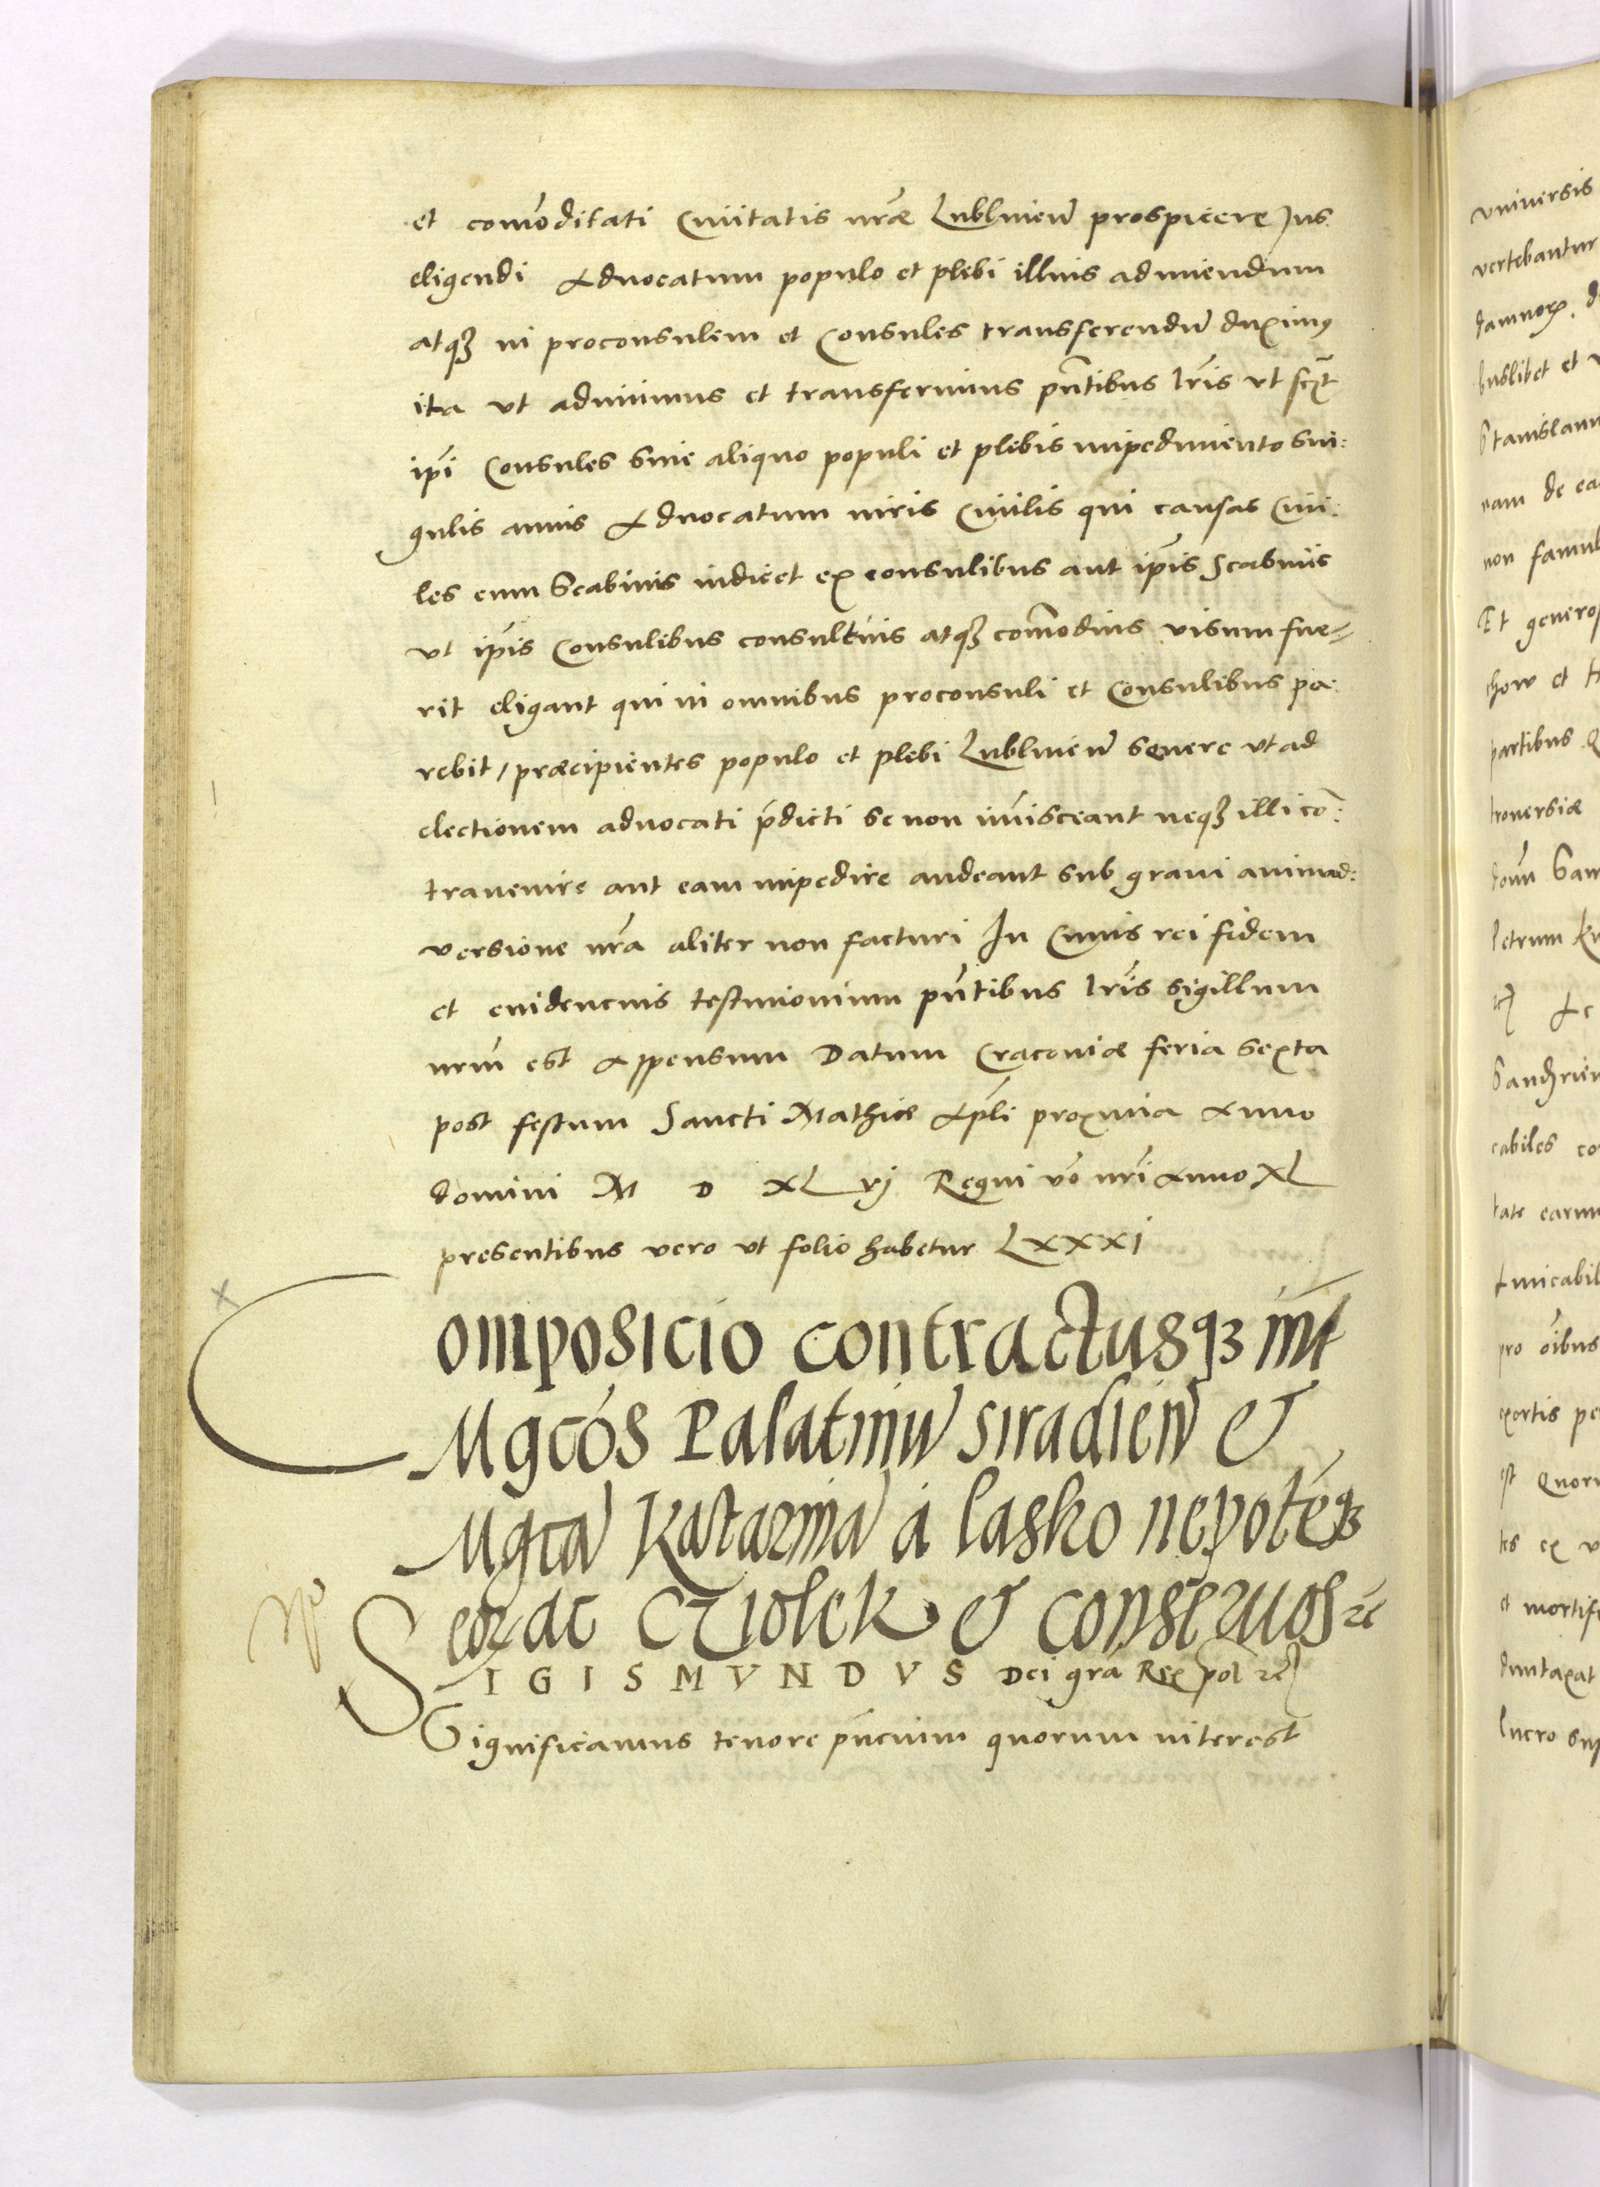 et com̄oditati Ciuitatis nr̄æ Lublinen̄ prospicere Jus
eligendi Aduocatum populo et plebi illius adimendum
atq₃ in proconsulem et Consules transferendū duximus
ita vt adimimus et transferimus pn̄tibus lr̄is vt
ip̄i Consules sine aliquo populi et plebis impedimento sin:
gulis annis Aduocatum iuris Ciuilis qui causas Ciui:
les cum Scabinis iudicet ex consulibus aut ip̄is Scabinis
vt ip̄is Consulibus consultius atq₃ com̄odius visum fue=
rit eligant qui in omnibus proconsuli et Consulibus pa:
rebit / præcipientes populo et plebi Lublinen̄ seuere vt ad
electionem aduocati p̄dicti se non im̄isceant neq₃ illi cō:
trauenire aut eam impedire audeant sub graui animad:
versione nr̄a aliter non facturi In Cuius rei fidem
et euidencius testimonium pn̄tibus lr̄is sigillum
nrm̄ est Appensum Datum Cracouiæ feria sexta
post festum Sancti Mathiæ Ap̄li proxima Anno
domini M D XL vj Regni vō nr̄i Anno XL
presentibus vero vt folio habetur LXXXI
Composicio contractusq₃ int̄
Mgcōs Palatinū siradien̄ &
Mgcā Katarinā á lasko nepotēq₃
eor ac Cziolek & conseruos
SIGISMVNDVS Dei gr̄a Rex pol̄
Significamus tenore pn̄cium quorum interest
vniuersis
vertebantur
Stanislaum
nam de ea
non famul
Et generos
chow et
partibus
trouersiæ
petrum
cabiles co
tate earum
Amicabil
pro ōibus
exortis pe
est Quoru
et mortifi
duntaxat
lucro sup